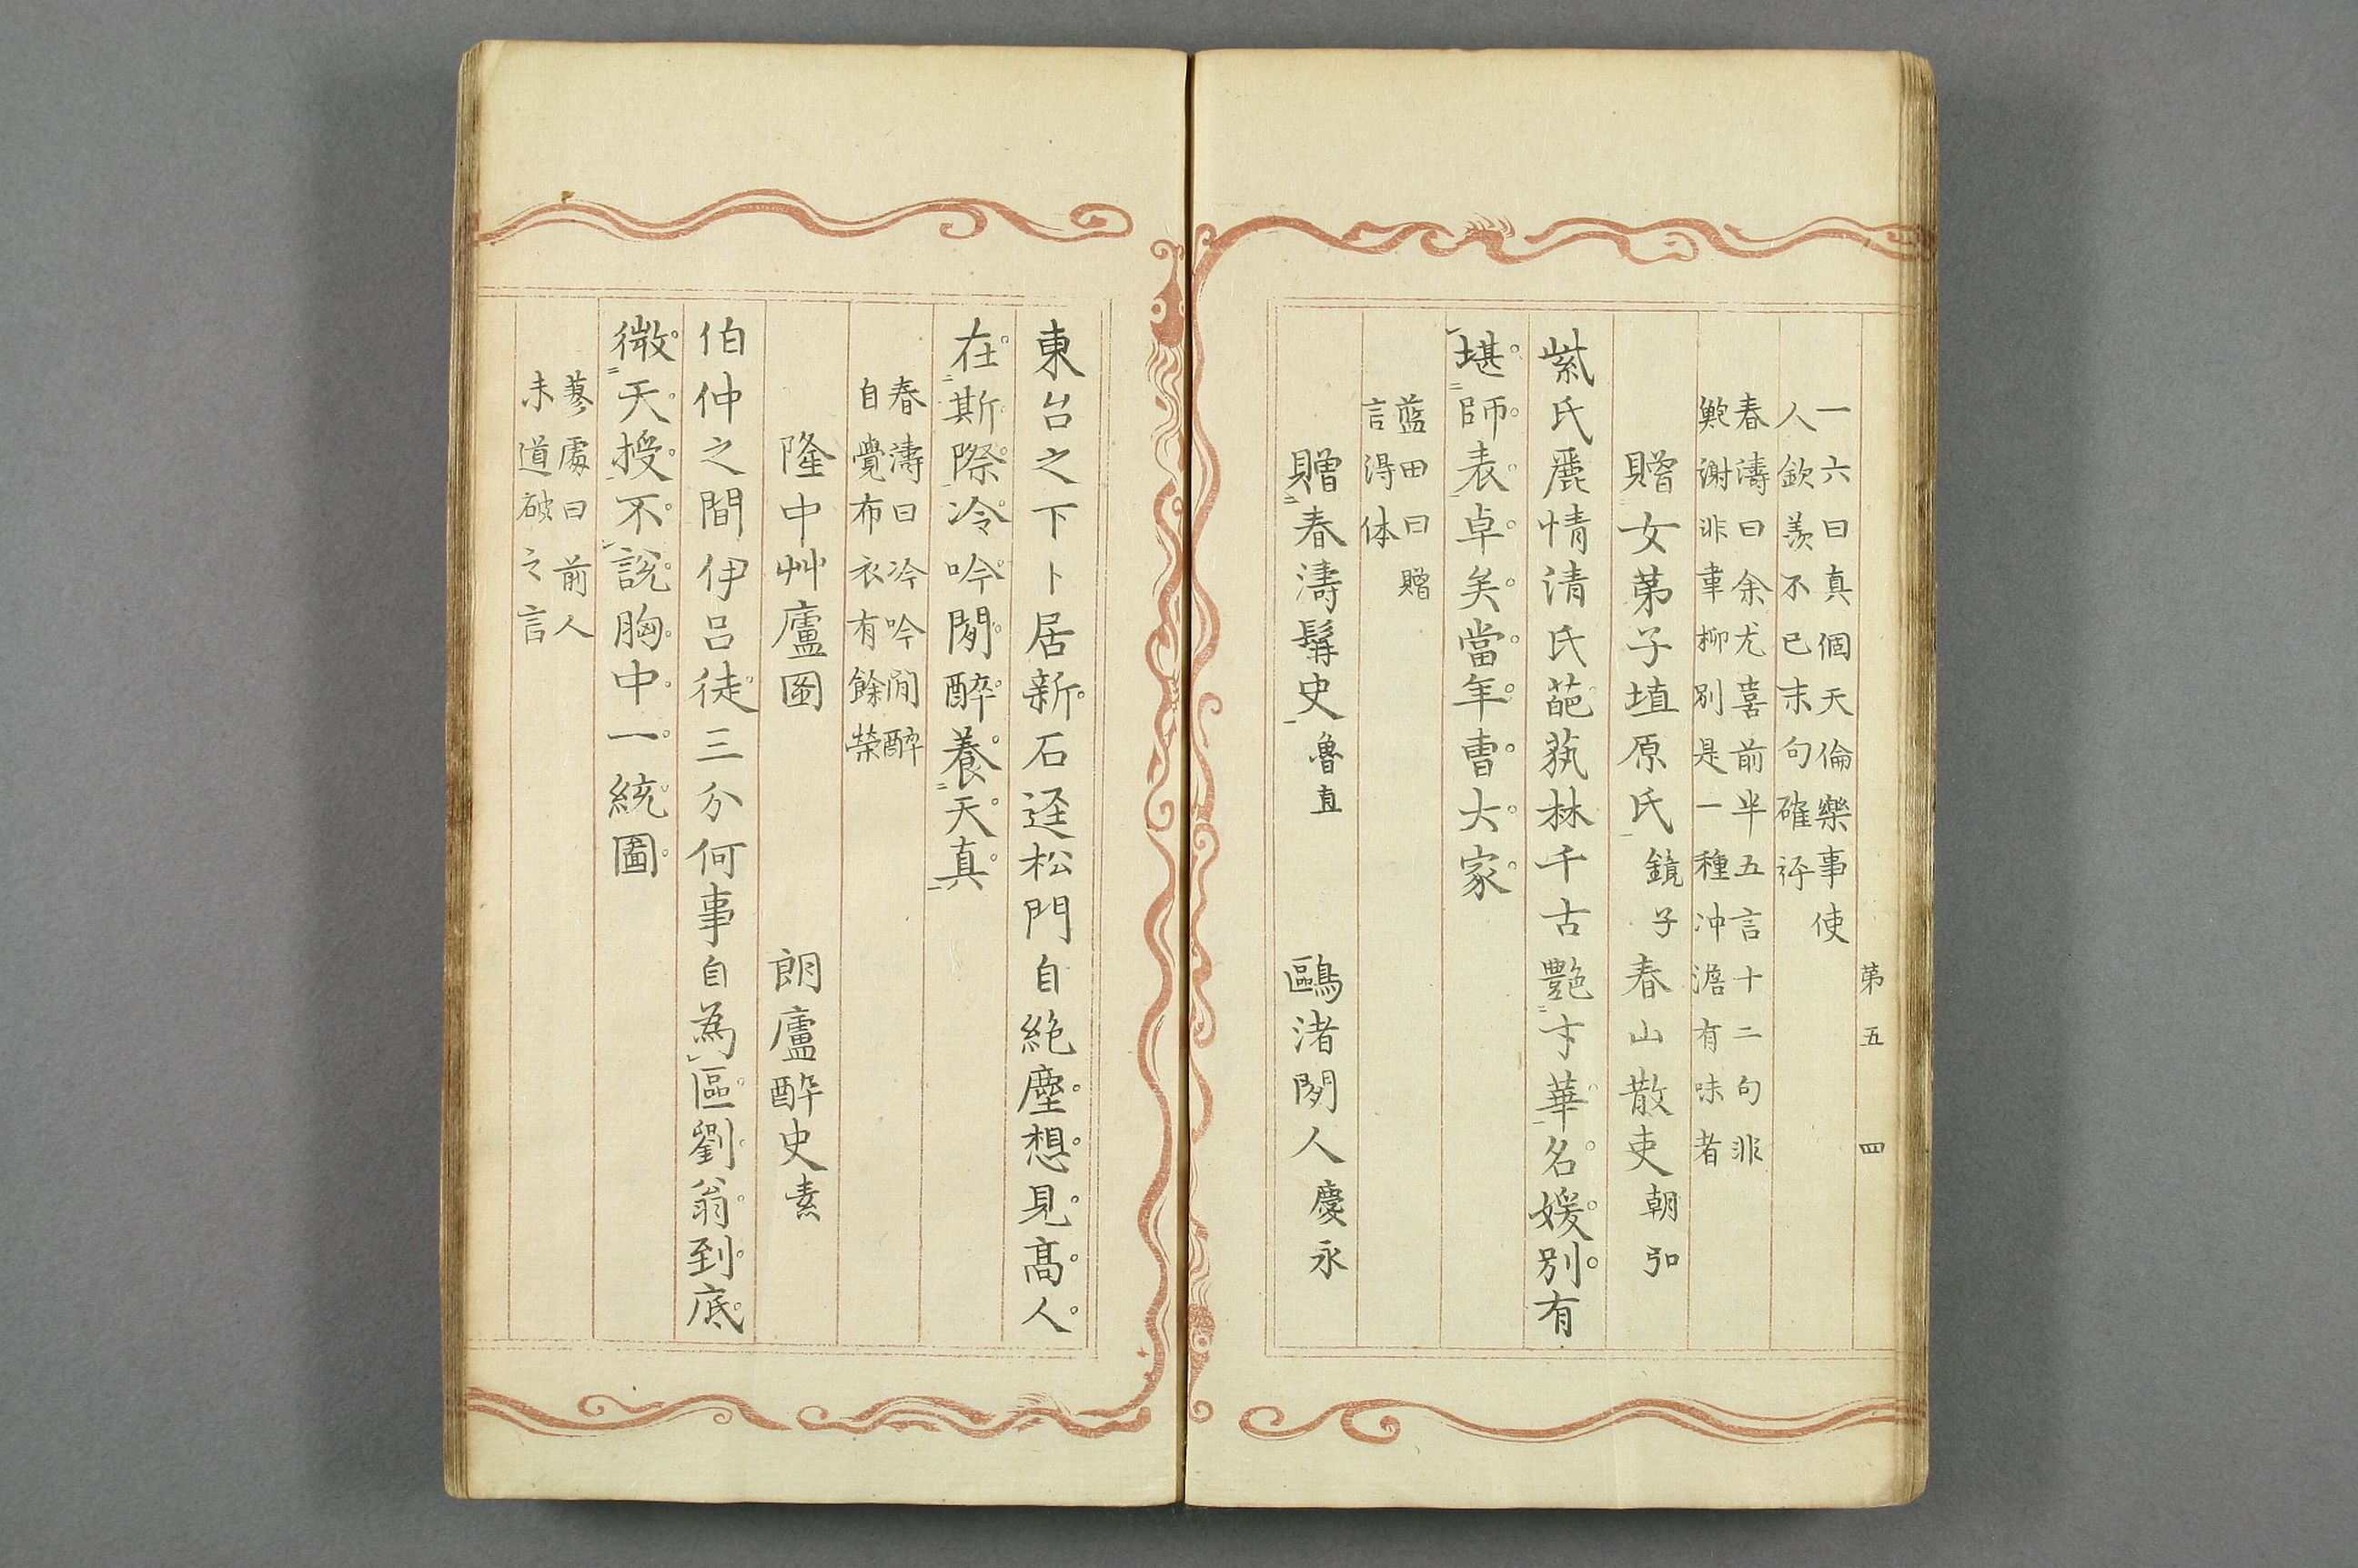 第五 四
一六曰真個天倫樂事使
人欽羨不已末句確評
春濤曰余尤喜前半五言十二句非
鮑謝非韋柳別是一種冲澹有味者
贈女苐子埴原氏 鏡子 春山散吏 朝弘
紫氏麗情清氏葩蓺林千古艷才華名媛別有
堪師表卓矣當年曹大家
藍田曰贈
言得体
贈春濤髯史 魯直 鷗渚閑人 慶永
東台之下卜居新石逕松門自絶塵想見髙人
在斯際冷吟閑醉養天真
春濤曰冷吟閒醉
自覺布衣有餘榮
隆中艸廬圖 朗廬酔史 素
伯仲之間伊呂徒三分何事自為區劉翁到底
微天授不說胸中一統圖
蓼處曰前人
未道破之言